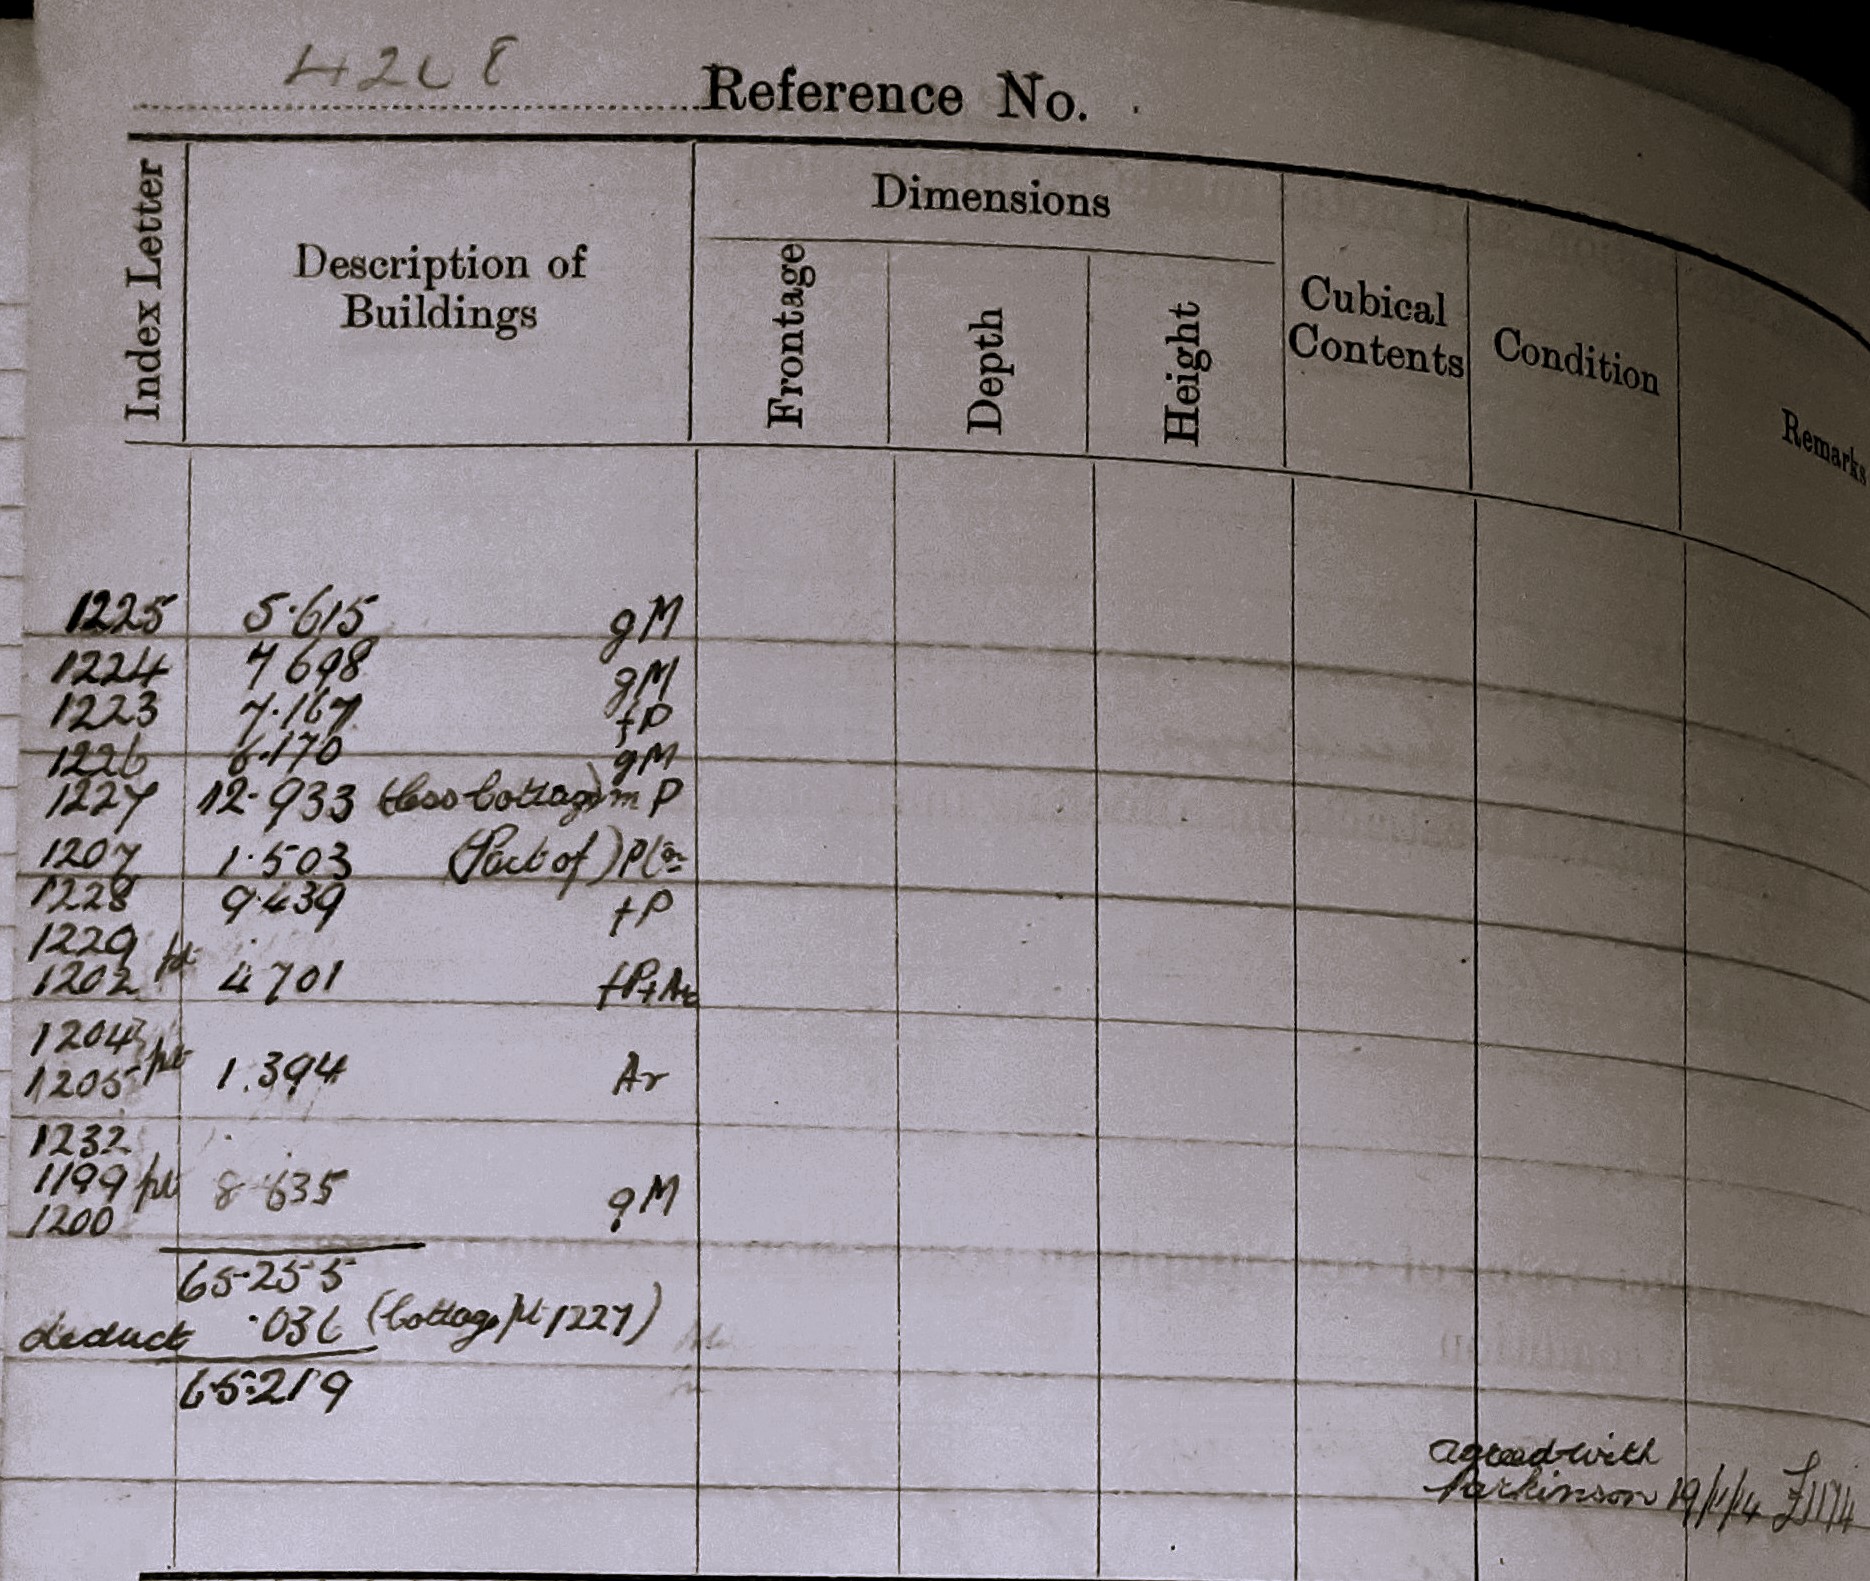 4208 Reference No.
Index Letter
Description of
Buildings
Dimensions
Frontage
Depth
Height
Cubical
Contents
Condition
Remarks
1225 5.615 gM
1224 7 698 gM
1223 7.167 fP
1226 6.170 gM
1227 12.933 (less Cottage) m P
1207 1.503 (Part of)
1228 9.439 fP
1229
1202 pt 4 701 fP+Ar
1204
1205 pt 1.394 Ar
1232
1199 pt 8 635 gM
1200
65.255
deduct .036 (Cottage pt 1227)
65.219
agreed with
Parkinson 19/1/14